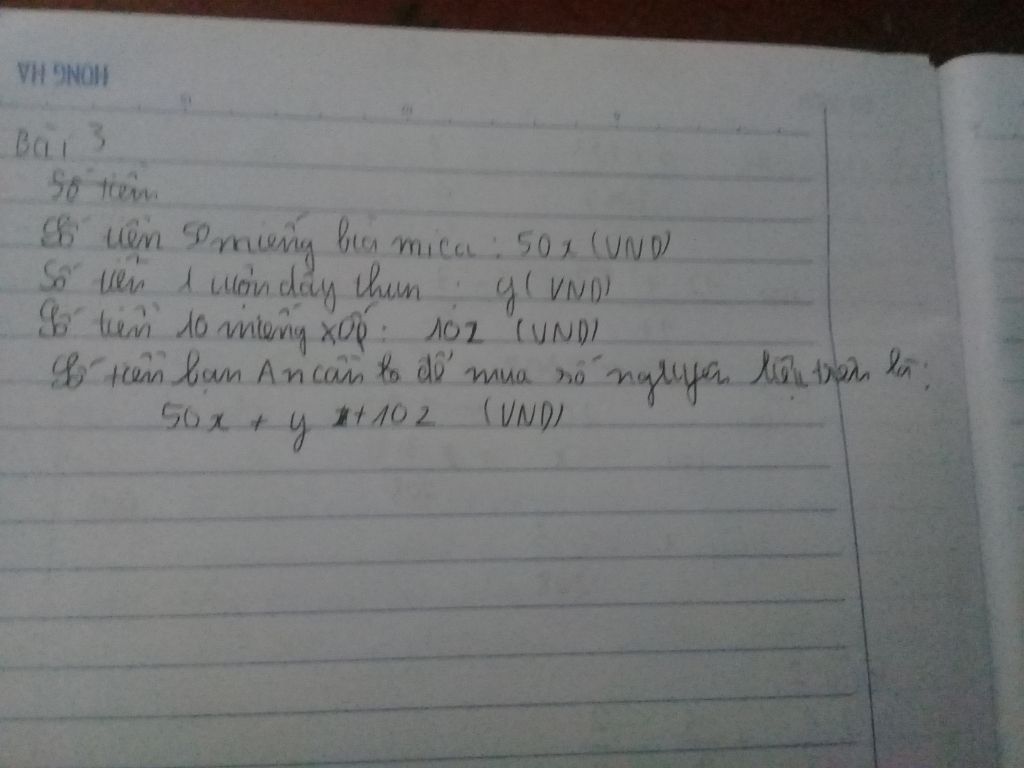 HONG HA
Bài 3
Số tiền
Số tiền 50 miếng bìa mica : 50x (VND)
Số tiền 1 cuộn dây thun : y (VND)
Số tiền 10 miếng xốp : 10z (VND)
Số tiền bạn An cần để mua số nguyên liệu trên là :
50x + y + 10z (VND)